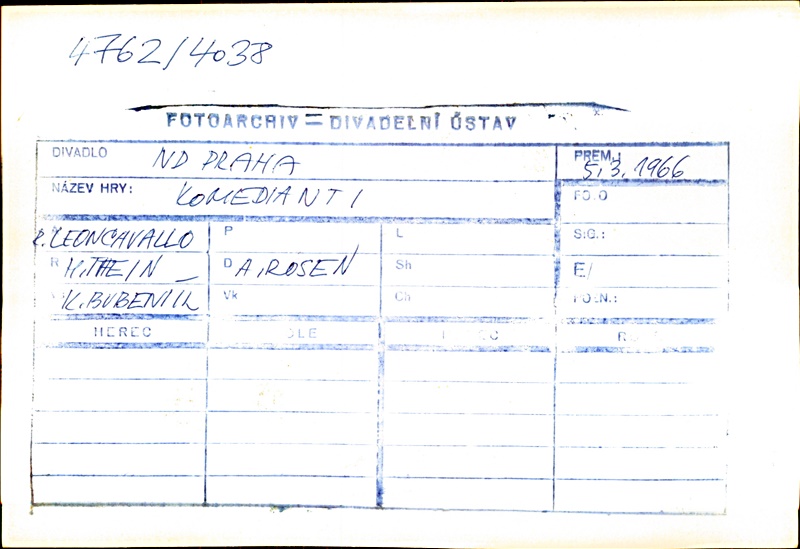 4762/4038
FOTOARCHIV = DIVADELNÍ ÚSTAV
DIVADLO ND PRAHA PREM.: 5.3.1966
NÁZEV HRY: KOMEDIANTI FOTO
R. LEONCAVALLO P L SIG.:
R H. THEIN D A. ROSEN Sh E/
K. BUBENÍK Vk Ch POZN.:
HEREC